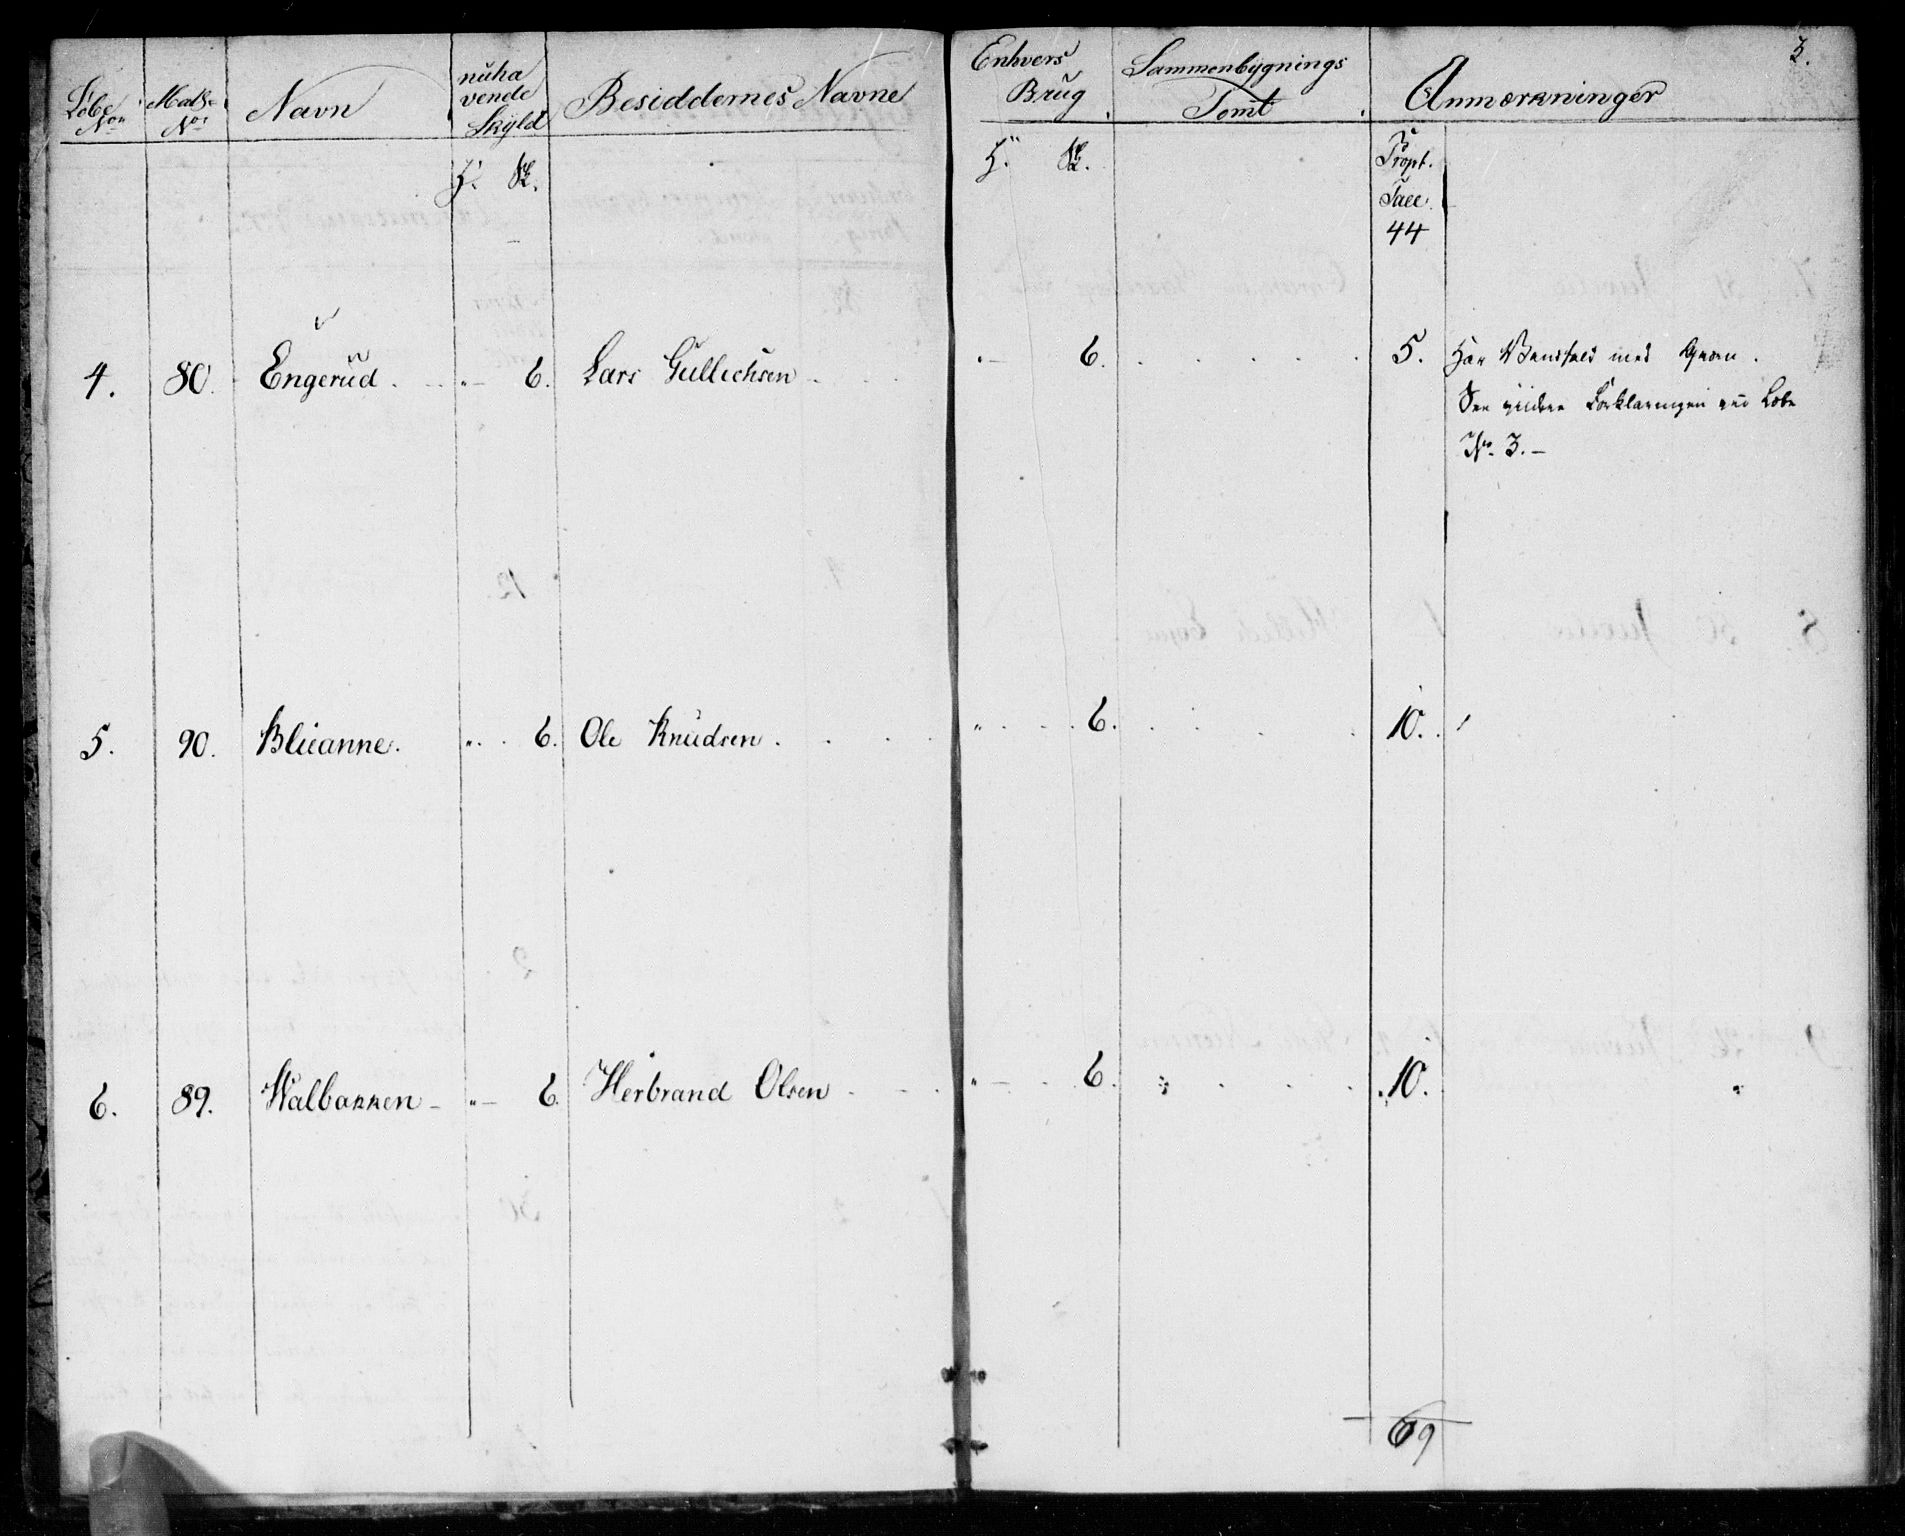 3.
Løbe No. Mats. No. Navn nuha vende Skyld Besiddernes Navne Enhvers Brug. Sammenbygnings Tomt. Anmærkninger
H. Sk. H. Sk. Propt.
Tall.
44
4. 80. Engerud. " 6. Lars Gullichsen 6. 5. Har med
See Forklaringen Løbe
No. 3.
5. 90. Blieanne. " 6. Ole Knudsen. " 6. 10.
6. 89. Walbakken " 6. Herbrand Olsen " 6. 10. "
69